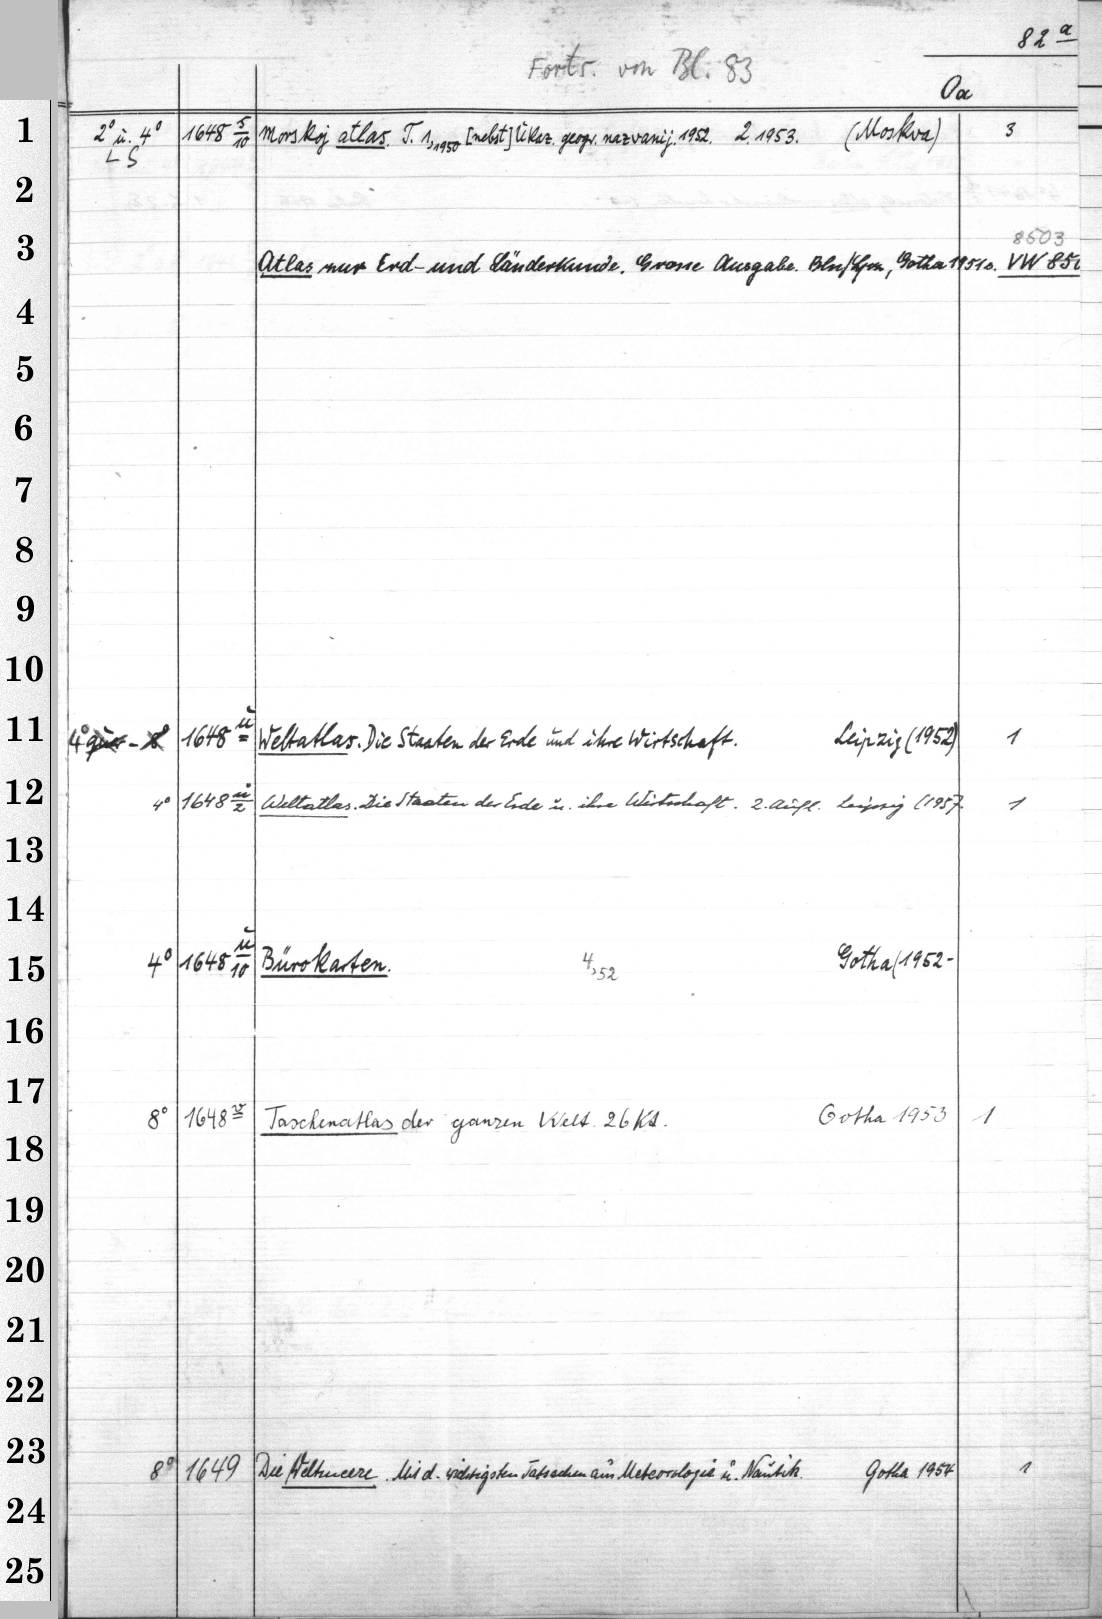 82 a
Forts. von Bl. 83
Oa
1 2° u. 4° 1648 5/10 Morskoj atlas. T. 1,1950 [nebst] Ukaz. geogr. nazvanij. 1952. 2. 1953. (Moskva) 3
LS
2
8503
3 Atlas zur Erd- und Länderkunde. Grosse Ausgabe. Bln/Lpz, Gotha 1951. VW 850
4
5
6
7
8
9
10
11 4° quer - 8° 1648 u Weltatlas. Die Staaten der Erde und ihre Wirtschaft. Leipzig (1952) 1
12 4° 1648 u/2 Weltatlas. Die Staaten der Erde u. ihre Wirtschaft. 2. Aufl. Leipzig (1957. 1
13
14
15 4° 1648 u/10 Bürokarten. 4,52 Gotha (1952-
16
17
8° 1648 v Taschenatlas der ganzen Welt. 26 Kt. Gotha 1953 1
18
19
20
21
22
23
8° 1649 Die Weltmeere. Mit d. wichtigsten Tatsachen aus Meteorologie u. Nautik. Gotha 1954 1
24
25